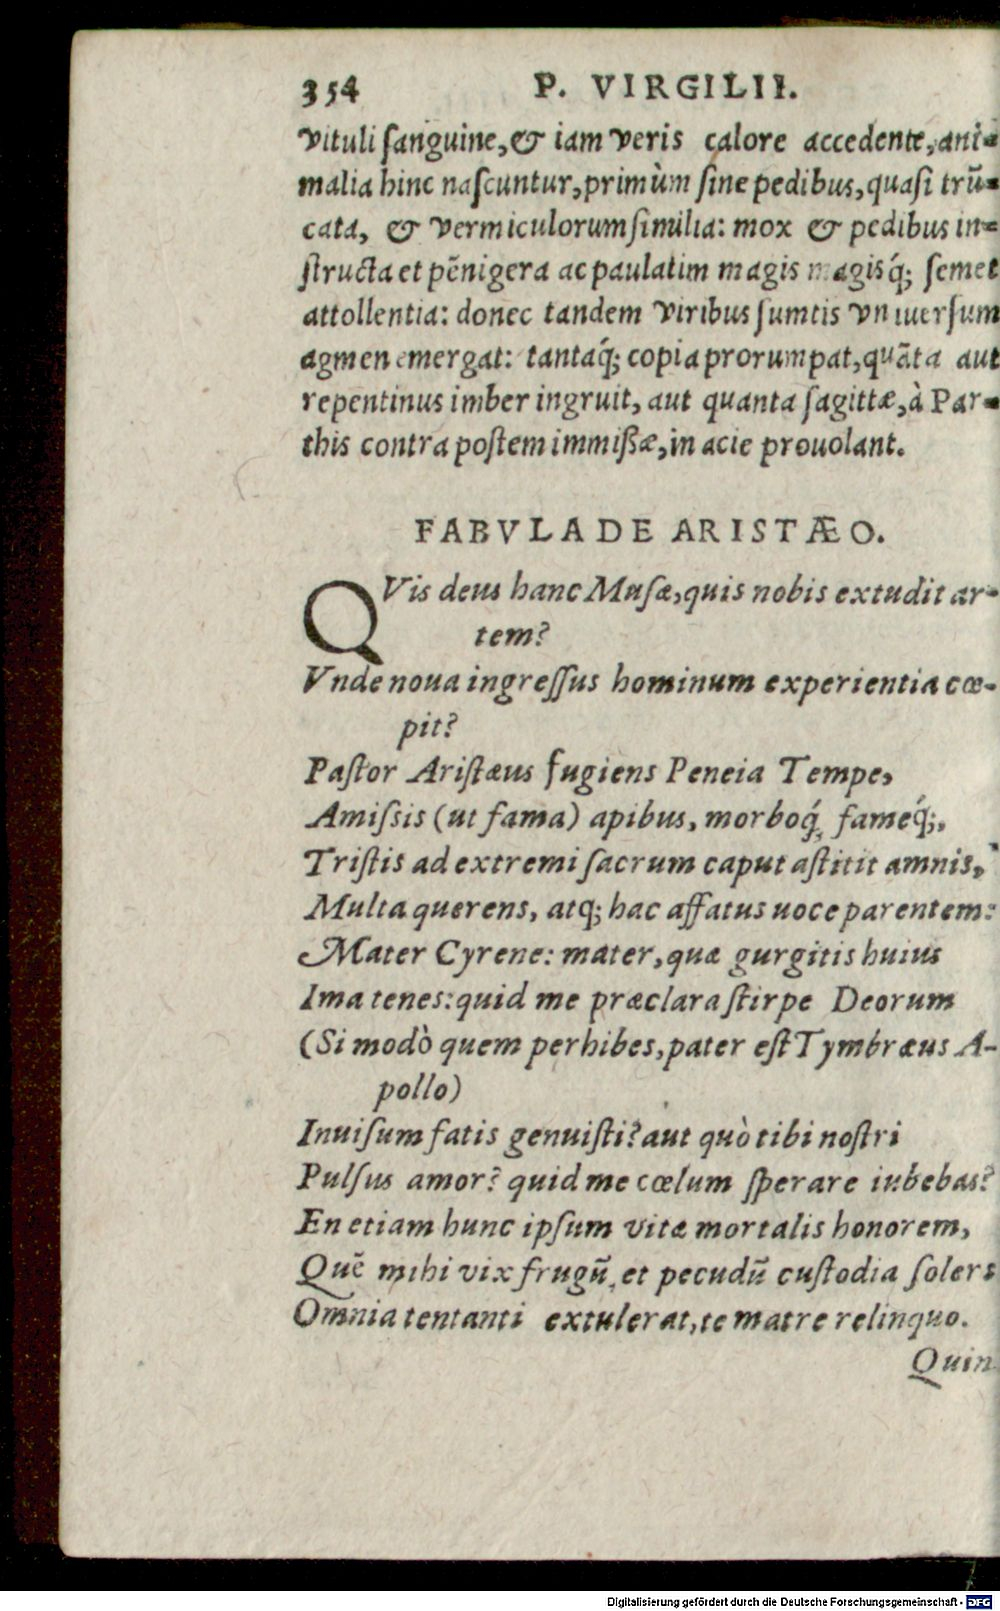 354 P. VIRGILII.
vituli ſanguine, & iam veris calore accedente, ani-
malia hinc naſcuntur, primùm ſine pedibus, quaſi trũ-
cata, & vermiculorum ſimilia: mox & pedibus in-
ſtructa et pẽnigera ac paulatim magis magisq́; ſemet
attollentia: donec tandem viribus ſumtis vniuerſum
agmen emergat: tantaq́; copia prorumpat, quãta aut
repentinus imber ingruit, aut quanta ſagittæ, à Par-
this contra poſtem immiſsæ, in acie prouolant.
FABVLA DE ARISTÆO.
QVis deus hanc Muſæ, quis nobis extudit ar-
tem?
Vnde noua ingreſſus hominum experientia cœ-
pit?
Paſtor Ariſtæus fugiens Peneia Tempe,
Amiſsis (ut fama) apibus, morboq́; fameq́;,
Triſtis ad extremi ſacrum caput aſtitit amnis,
Multa querens, atq; hac affatus uoce parentem:
Mater Cyrene: mater, quæ gurgitis huius
Ima tenes: quid me præclara ſtirpe Deorum
(Si modò quem perhibes, pater eſt Tymbræus A-
pollo)
Inuiſum fatis genuiſti? aut quò tibi noſtri
Pulſus amor? quid me cœlum ſperare iubebas?
En etiam hunc ipſum vitæ mortalis honorem,
Quẽ mihi vix frugũ, et pecudũ cuſtodia ſolers
Omnia tentanti extulerat, te matre relinquo.
Quin
Digitalisierung gefördert durch die Deutsche Forschungsgemeinschaft - DFG